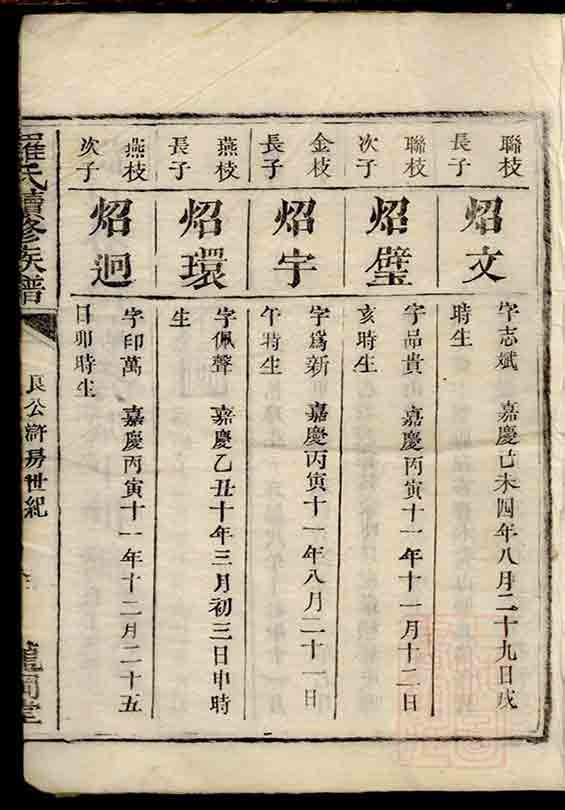 聯枝
長子
炤文
字志斌　嘉慶己未四年八月二十九日戌
時生
聯枝
次子
炤璧
字品貴　嘉慶丙寅十一年十一月十二日
亥時生
金枝
長子
炤宇
字爲新　嘉慶丙寅十一年八月二十一日
午時生
燕枝
長子
炤環
字佩聲　嘉慶乙丑十年三月初三日申時
生
燕枝
次子
炤迥
字印萬　嘉慶丙寅十一年十二月二十五
日卯時生
羅氏續修族譜
良公滸房世紀